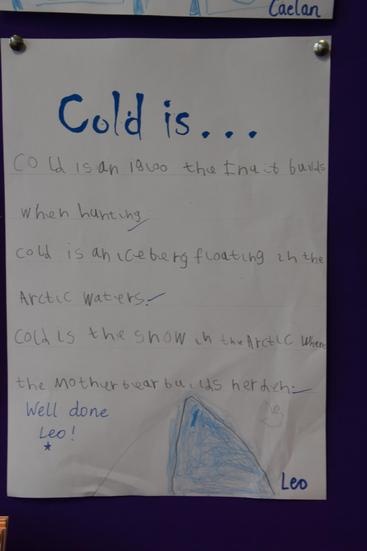 Caelan
Cold is...
Cold is an igloo the Inuit builds
when hunting
cold is an iceberg floating in the
Arctic waters.
Cold is the snow in the Arctic when
the mother bear builds her den.
Well done
Leo!
Leo